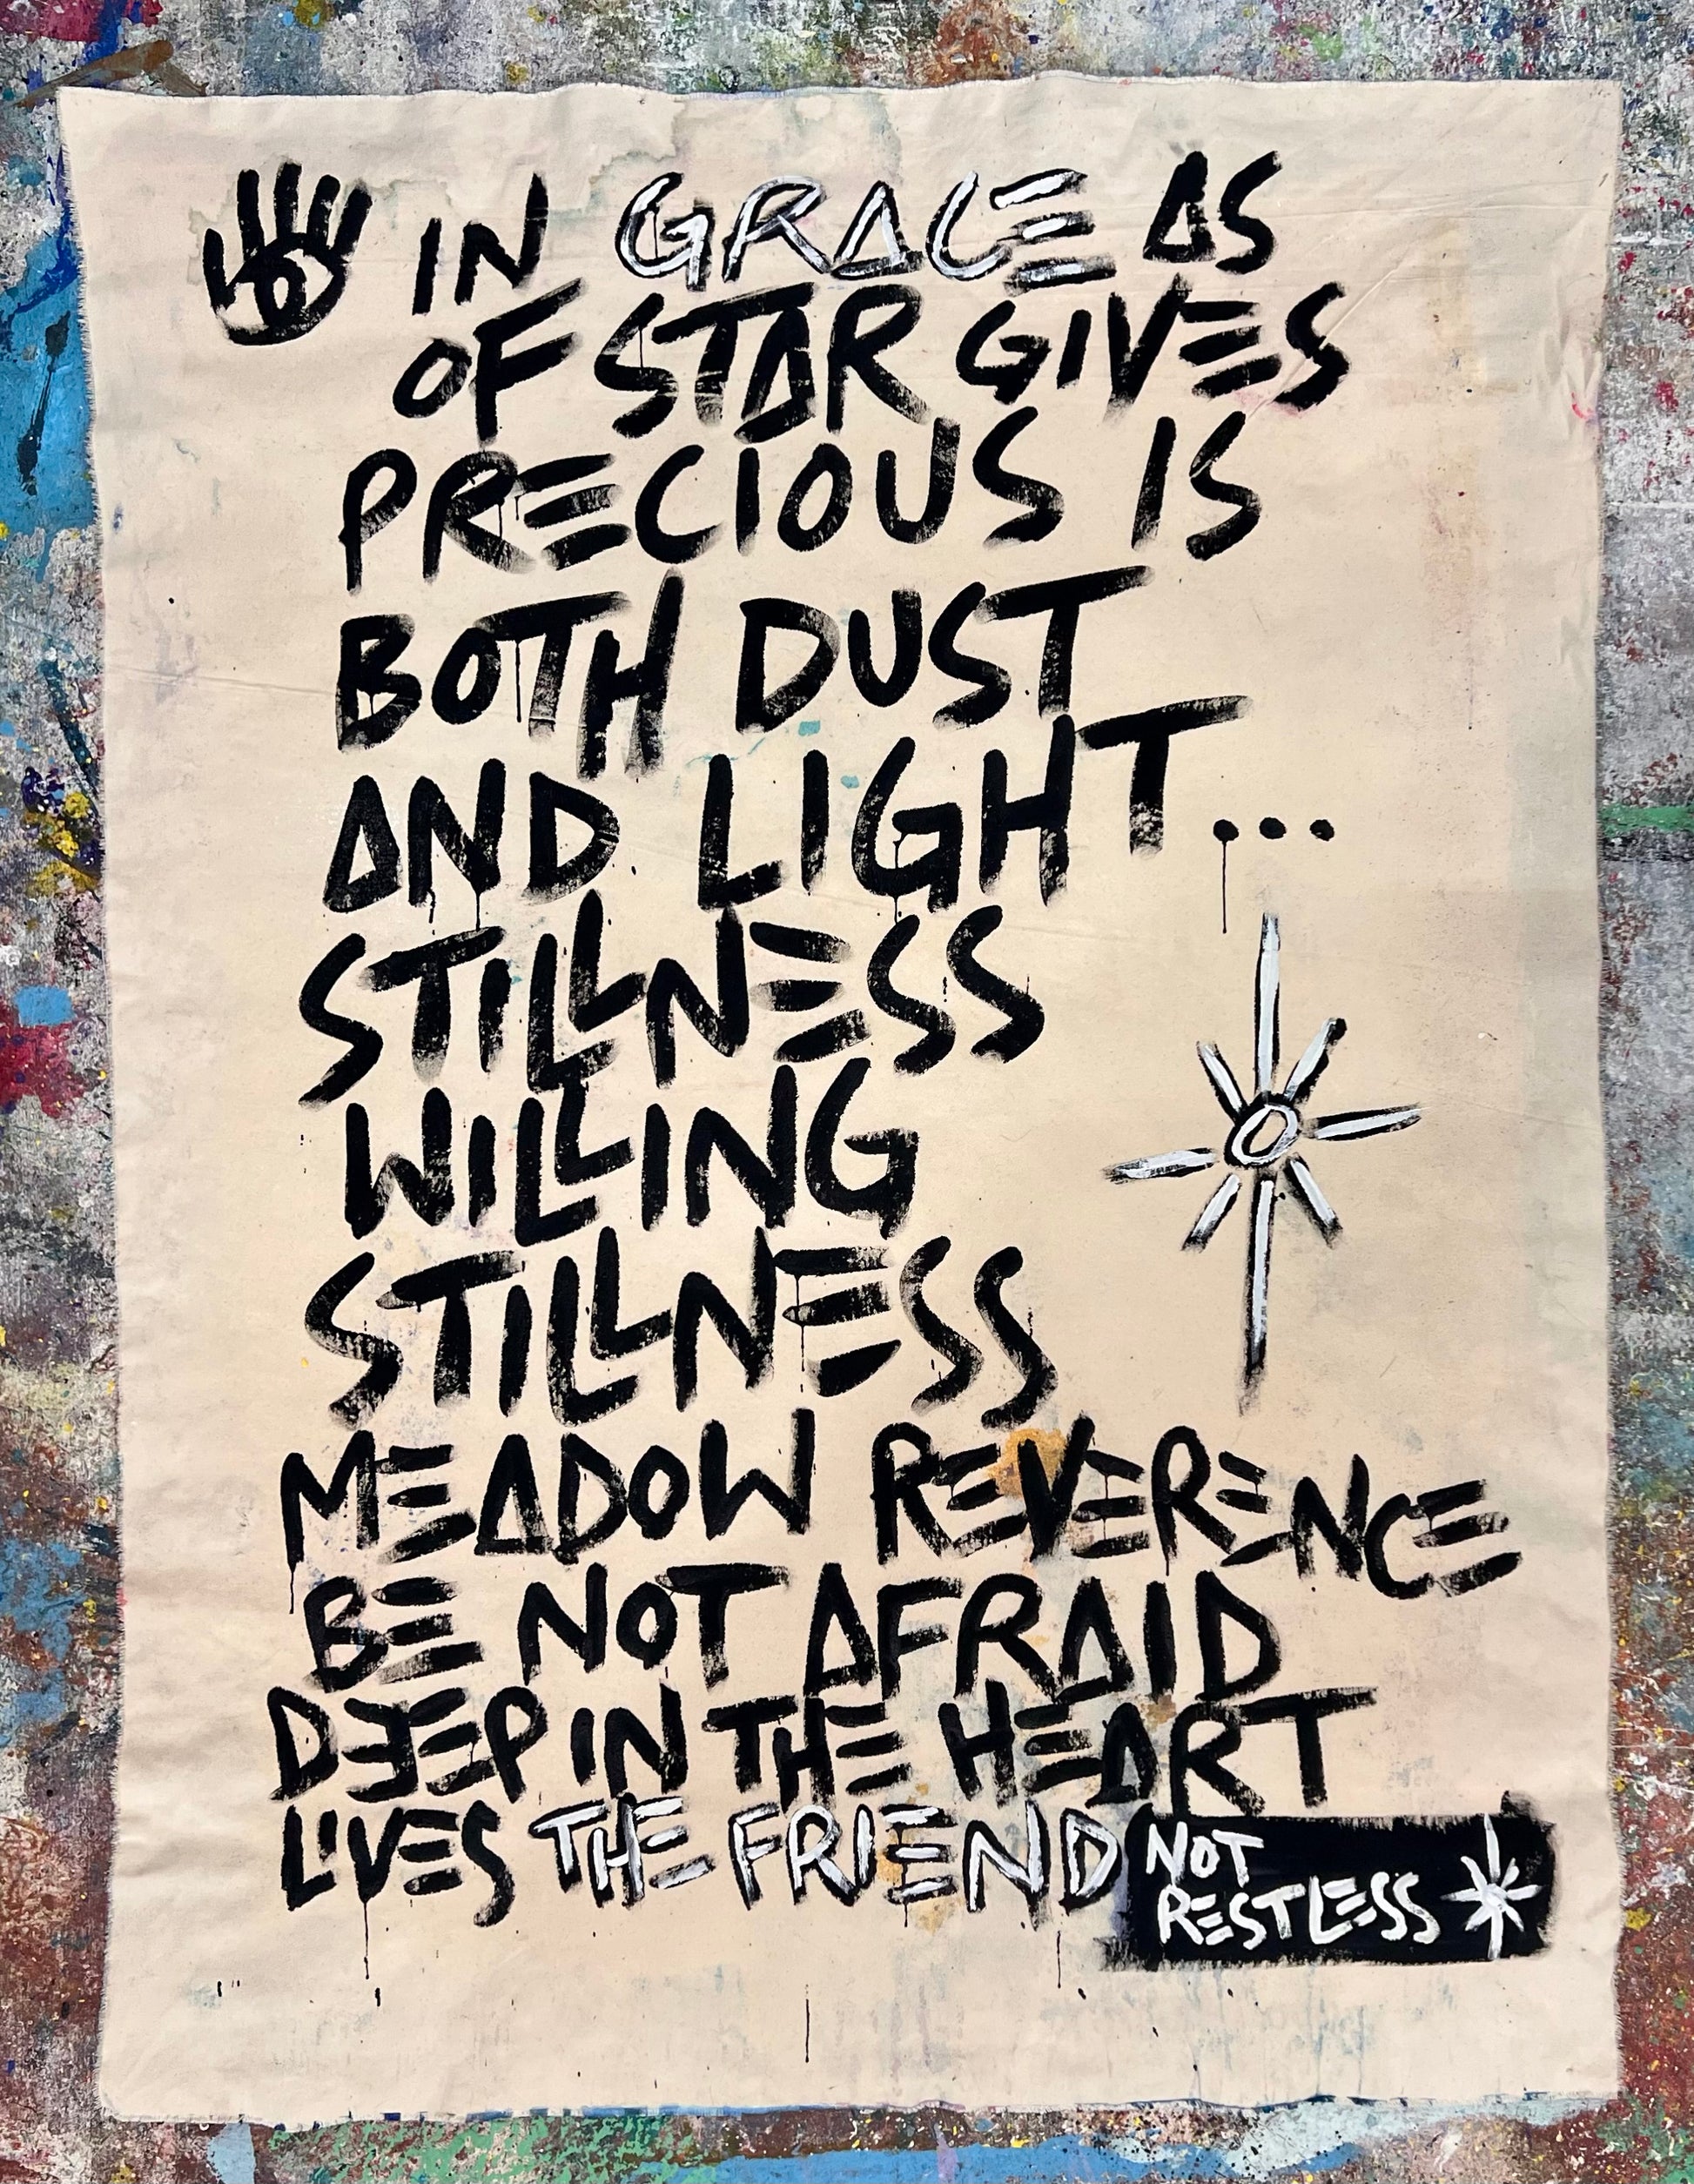 IN GRACE AS
OF STAR GIVES
PRECIOUS IS
BOTH DUST
AND LIGHT...
STILLNESS
WILLING
STILLNESS
MEADOW REVERENCE
BE NOT AFRAID
DEEP IN THE HEART
LIVES THE FRIEND
NOT
RESTLESS